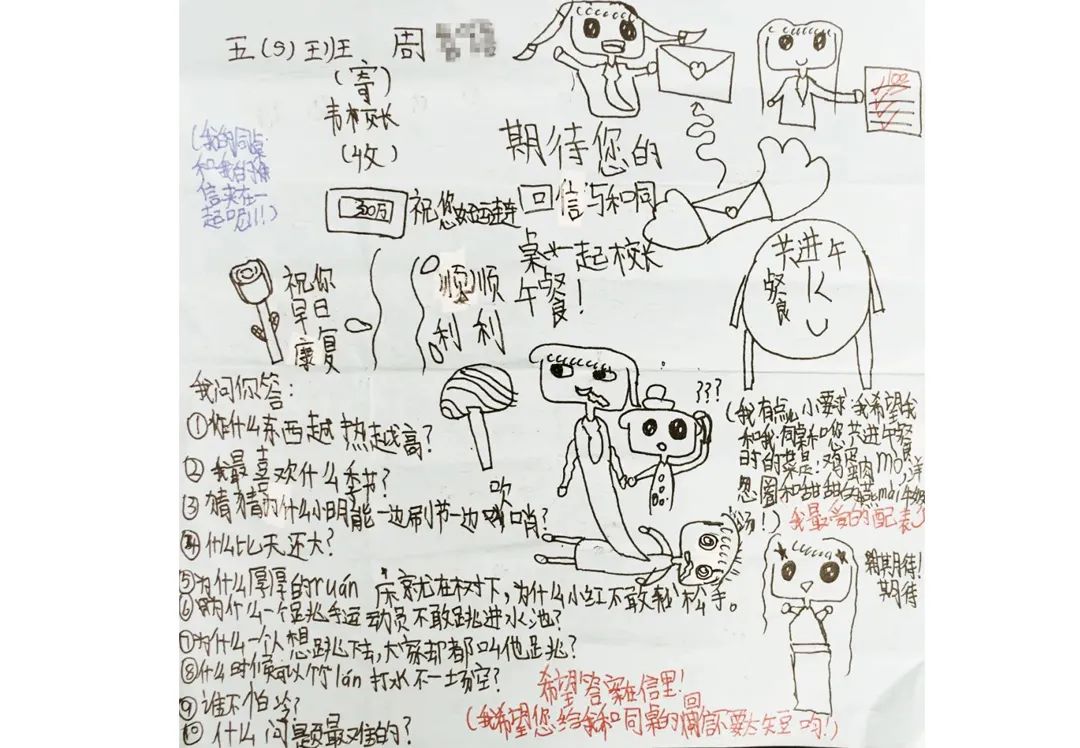 五(9)班 周
(寄)
韦校长
(收)
(我的同桌
和我的
信来在一
起呢!!!)
100
期待您的
回信与和同
桌一起校长
午餐!
祝您好运连连
祝你
早日
康复
顺顺
利利
共进午
餐
我问你答:
①作什么东西越热越高?
②我最喜欢什么季节?
③猜猜为什么小明能一边刷牙一边吹哨?
④什么比天还大?
⑤为什么厚厚的ruán床就在树下,为什么小红不敢轻松手。
⑥为什么一个跳水运动员不敢跳进水池?
⑦为什么一个人想跳下去,大家却都叫他跳?
⑧什么时候可以竹lán打水不一场空?
⑨谁不怕冷?
⑩什么问题最难的?
???
(我有点小要求,我希望我
和我同桌和您共进午餐
时的菜是:鸡蛋肉mò,洋
忽圈和甜甜
汤!)我最爱的配表了
期待!
期待
希望答案在信里!
(我希望您给我和同桌的回信不要太短哟!)